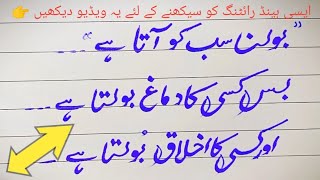 ایسی ہینڈ رائٹنگ کو سیکھنے کے لئے یہ ویڈیو دیکھیں
"بولنا سب کو آتا ہے"
بس کسی کا دماغ بولتا ہے...
اور کسی کا اخلاق بولتا ہے...